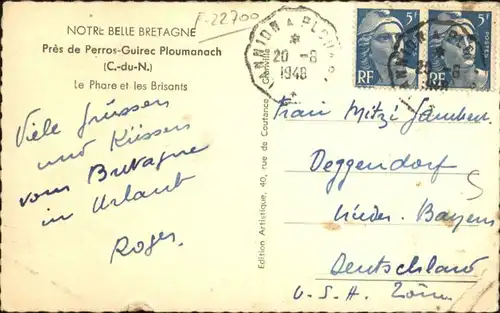 F-22700
NOTRE BELLE BRETAGNE
Près de Perros-Guirec Ploumanach
(C.-du-N.)
Le Phare et les Brisants
Viele Grüssen
und Küssen
vom Bretagne
in Urlaub
Roger
Edition Artistique, 40, rue de Coutance, Granville
LANNION A PLOU
20-8
1948
5F
RF
5F
RF
POSTES
Frau Mitzi Lambert
Deggendorf
Nieder. Bayern
Deutschland
U.S.A. Zone